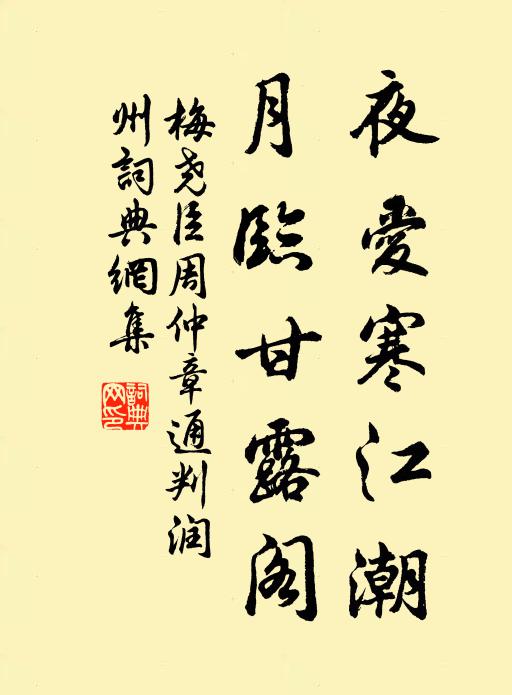 夜愛寒江潮
月臨甘露阁
梅尧臣周仲章通判润
州詞典網集
詞典网印